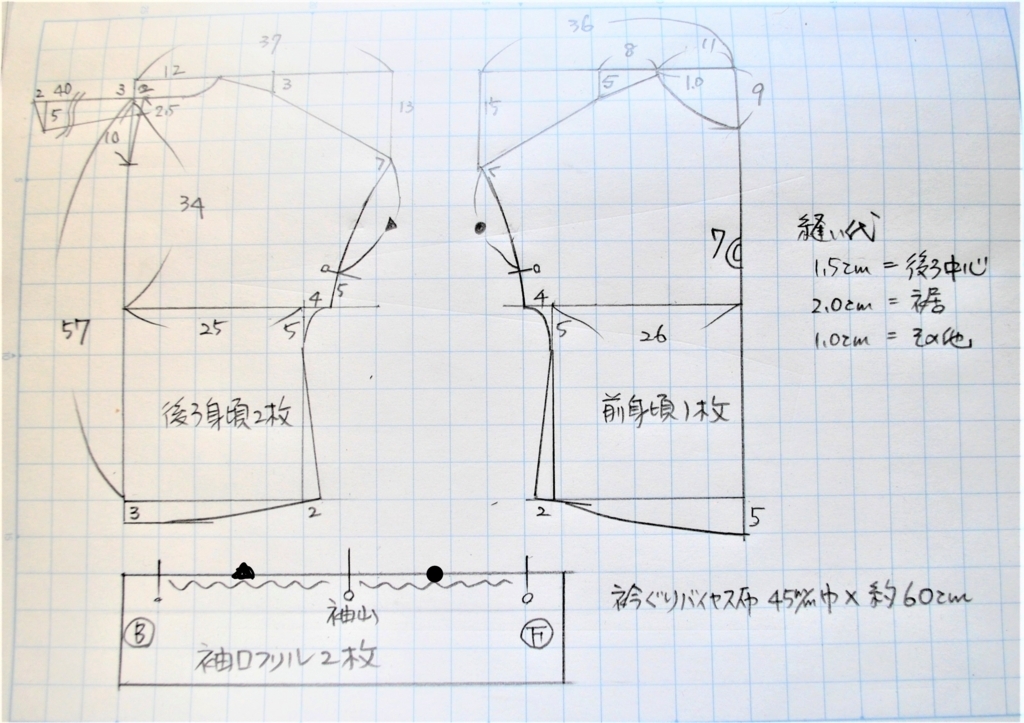 37
12
3
13
2
40
3
2
5
2.5
10
34
7
5
4
25
5
57
後ろ身頃2枚
3
2
36
8
11
5
1.0
9
15
7
4
5
26
前身頃1枚
2
5
縫い代
1.5cm = 後ろ中心
2.0cm = 裾
1.0cm = その他
袖山
B
F
袖口フリル2枚
衿ぐりバイヤス布 45m/m巾 × 約60cm